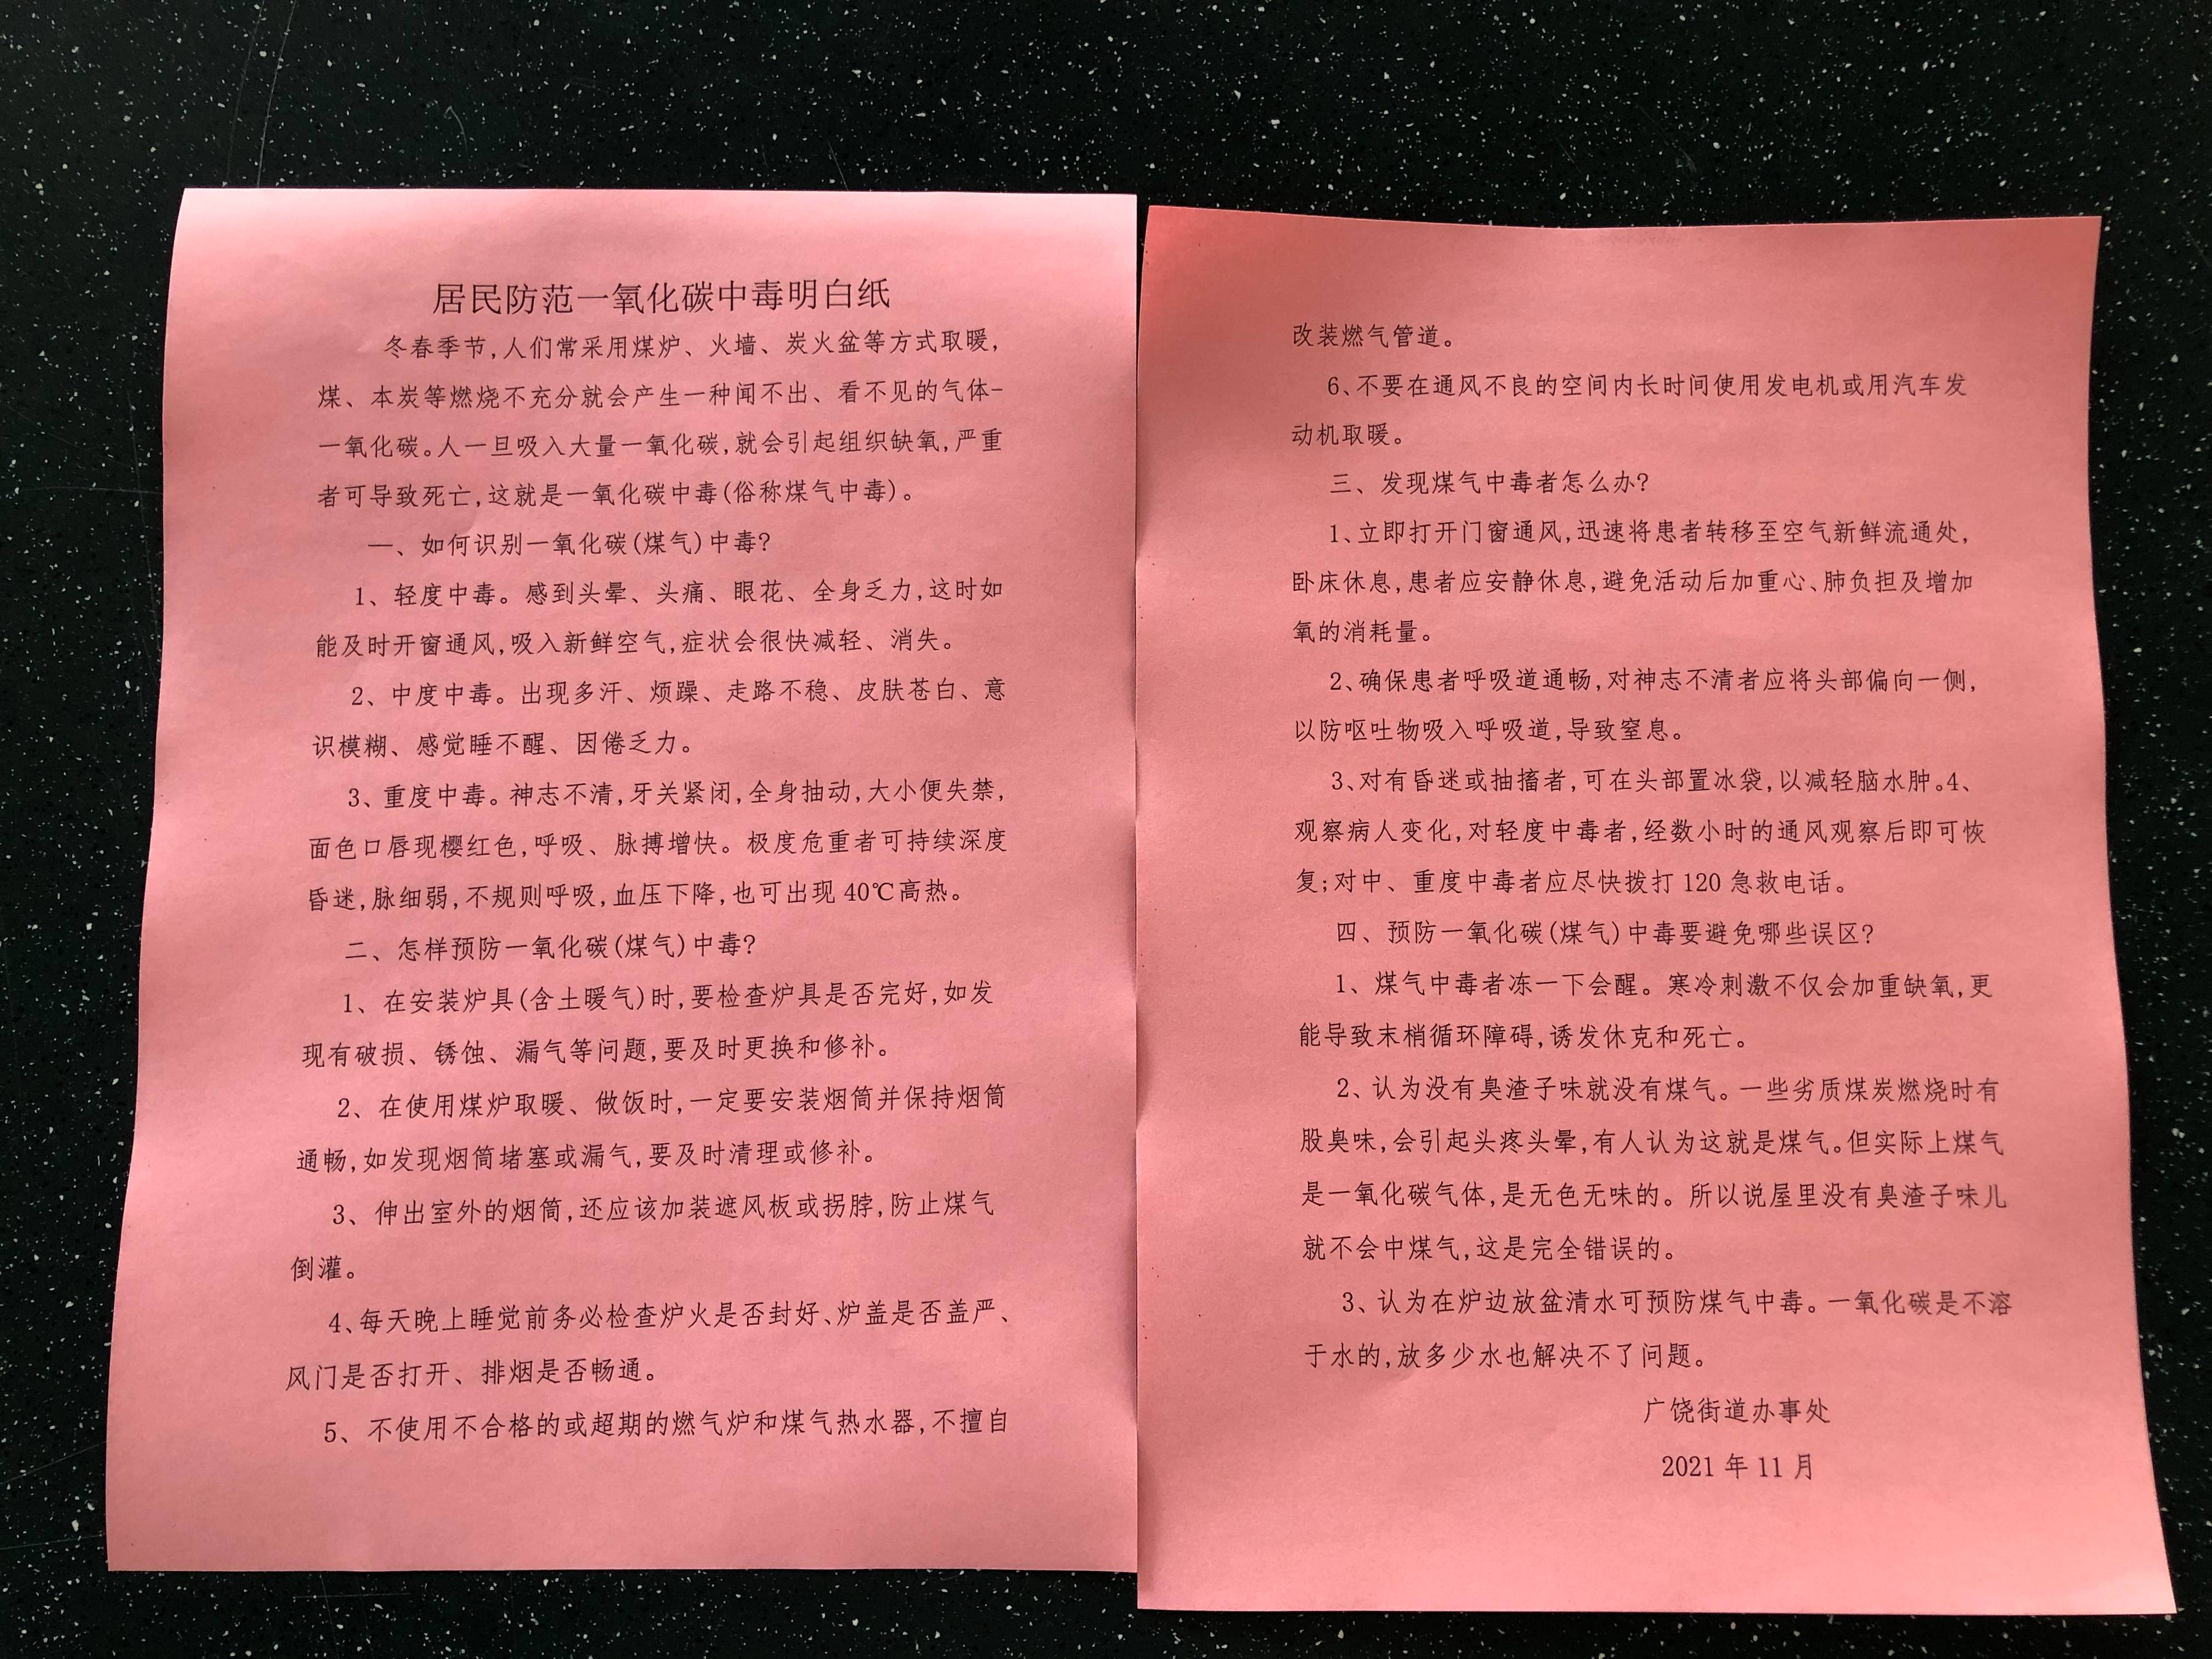 居民防范一氧化碳中毒明白纸
冬春季节,人们常采用煤炉、火墙、炭火盆等方式取暖,
煤、本炭等燃烧不充分就会产生一种闻不出、看不见的气体-
一氧化碳。人一旦吸入大量一氧化碳,就会引起组织缺氧,严重
者可导致死亡,这就是一氧化碳中毒(俗称煤气中毒)。
一、如何识别一氧化碳(煤气)中毒?
1、轻度中毒。感到头晕、头痛、眼花、全身乏力,这时如
能及时开窗通风,吸入新鲜空气,症状会很快减轻、消失。
2、中度中毒。出现多汗、烦躁、走路不稳、皮肤苍白、意
识模糊、感觉睡不醒、因倦乏力。
3、重度中毒。神志不清,牙关紧闭,全身抽动,大小便失禁,
面色口唇现樱红色,呼吸、脉搏增快。极度危重者可持续深度
昏迷,脉细弱,不规则呼吸,血压下降,也可出现40℃高热。
二、怎样预防一氧化碳(煤气)中毒?
1、在安装炉具(含土暖气)时,要检查炉具是否完好,如发
现有破损、锈蚀、漏气等问题,要及时更换和修补。
2、在使用煤炉取暖、做饭时,一定要安装烟筒并保持烟筒
通畅,如发现烟筒堵塞或漏气,要及时清理或修补。
3、伸出室外的烟筒,还应该加装遮风板或拐脖,防止煤气
倒灌。
4、每天晚上睡觉前务必检查炉火是否封好、炉盖是否盖严、
风门是否打开、排烟是否畅通。
5、不使用不合格的或超期的燃气炉和煤气热水器,不擅自
改装燃气管道。
6、不要在通风不良的空间内长时间使用发电机或用汽车发
动机取暖。
三、发现煤气中毒者怎么办?
1、立即打开门窗通风,迅速将患者转移至空气新鲜流通处,
卧床休息,患者应安静休息,避免活动后加重心、肺负担及增加
氧的消耗量。
2、确保患者呼吸道通畅,对神志不清者应将头部偏向一侧,
以防呕吐物吸入呼吸道,导致窒息。
3、对有昏迷或抽搐者,可在头部置冰袋,以减轻脑水肿。4、
观察病人变化,对轻度中毒者,经数小时的通风观察后即可恢
复;对中、重度中毒者应尽快拨打120急救电话。
四、预防一氧化碳(煤气)中毒要避免哪些误区?
1、煤气中毒者冻一下会醒。寒冷刺激不仅会加重缺氧,更
能导致末梢循环障碍,诱发休克和死亡。
2、认为没有臭渣子味就没有煤气。一些劣质煤炭燃烧时有
股臭味,会引起头疼头晕,有人认为这就是煤气。但实际上煤气
是一氧化碳气体,是无色无味的。所以说屋里没有臭渣子味儿
就不会中煤气,这是完全错误的。
3、认为在炉边放盆清水可预防煤气中毒。一氧化碳是不溶
于水的,放多少水也解决不了问题。
广饶街道办事处
2021年11月